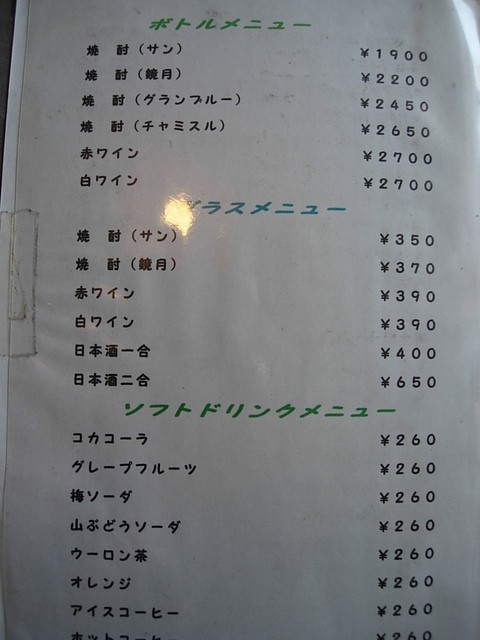 ボトルメニュー
焼 酎（サン） ￥1900
焼 酎（鏡月） ￥2200
焼 酎（グランブルー） ￥2450
焼 酎（チャミスル） ￥2650
赤ワイン ￥2700
白ワイン ￥2700
グラスメニュー
焼 酎（サン） ￥350
焼 酎（鏡月） ￥370
赤ワイン ￥390
白ワイン ￥390
日本酒一合 ￥400
日本酒二合 ￥650
ソフトドリンクメニュー
コカコーラ ￥260
グレープフルーツ ￥260
梅ソーダ ￥260
山ぶどうソーダ ￥260
ウーロン茶 ￥260
オレンジ ￥260
アイスコーヒー ￥260
ホットコーヒー ￥260